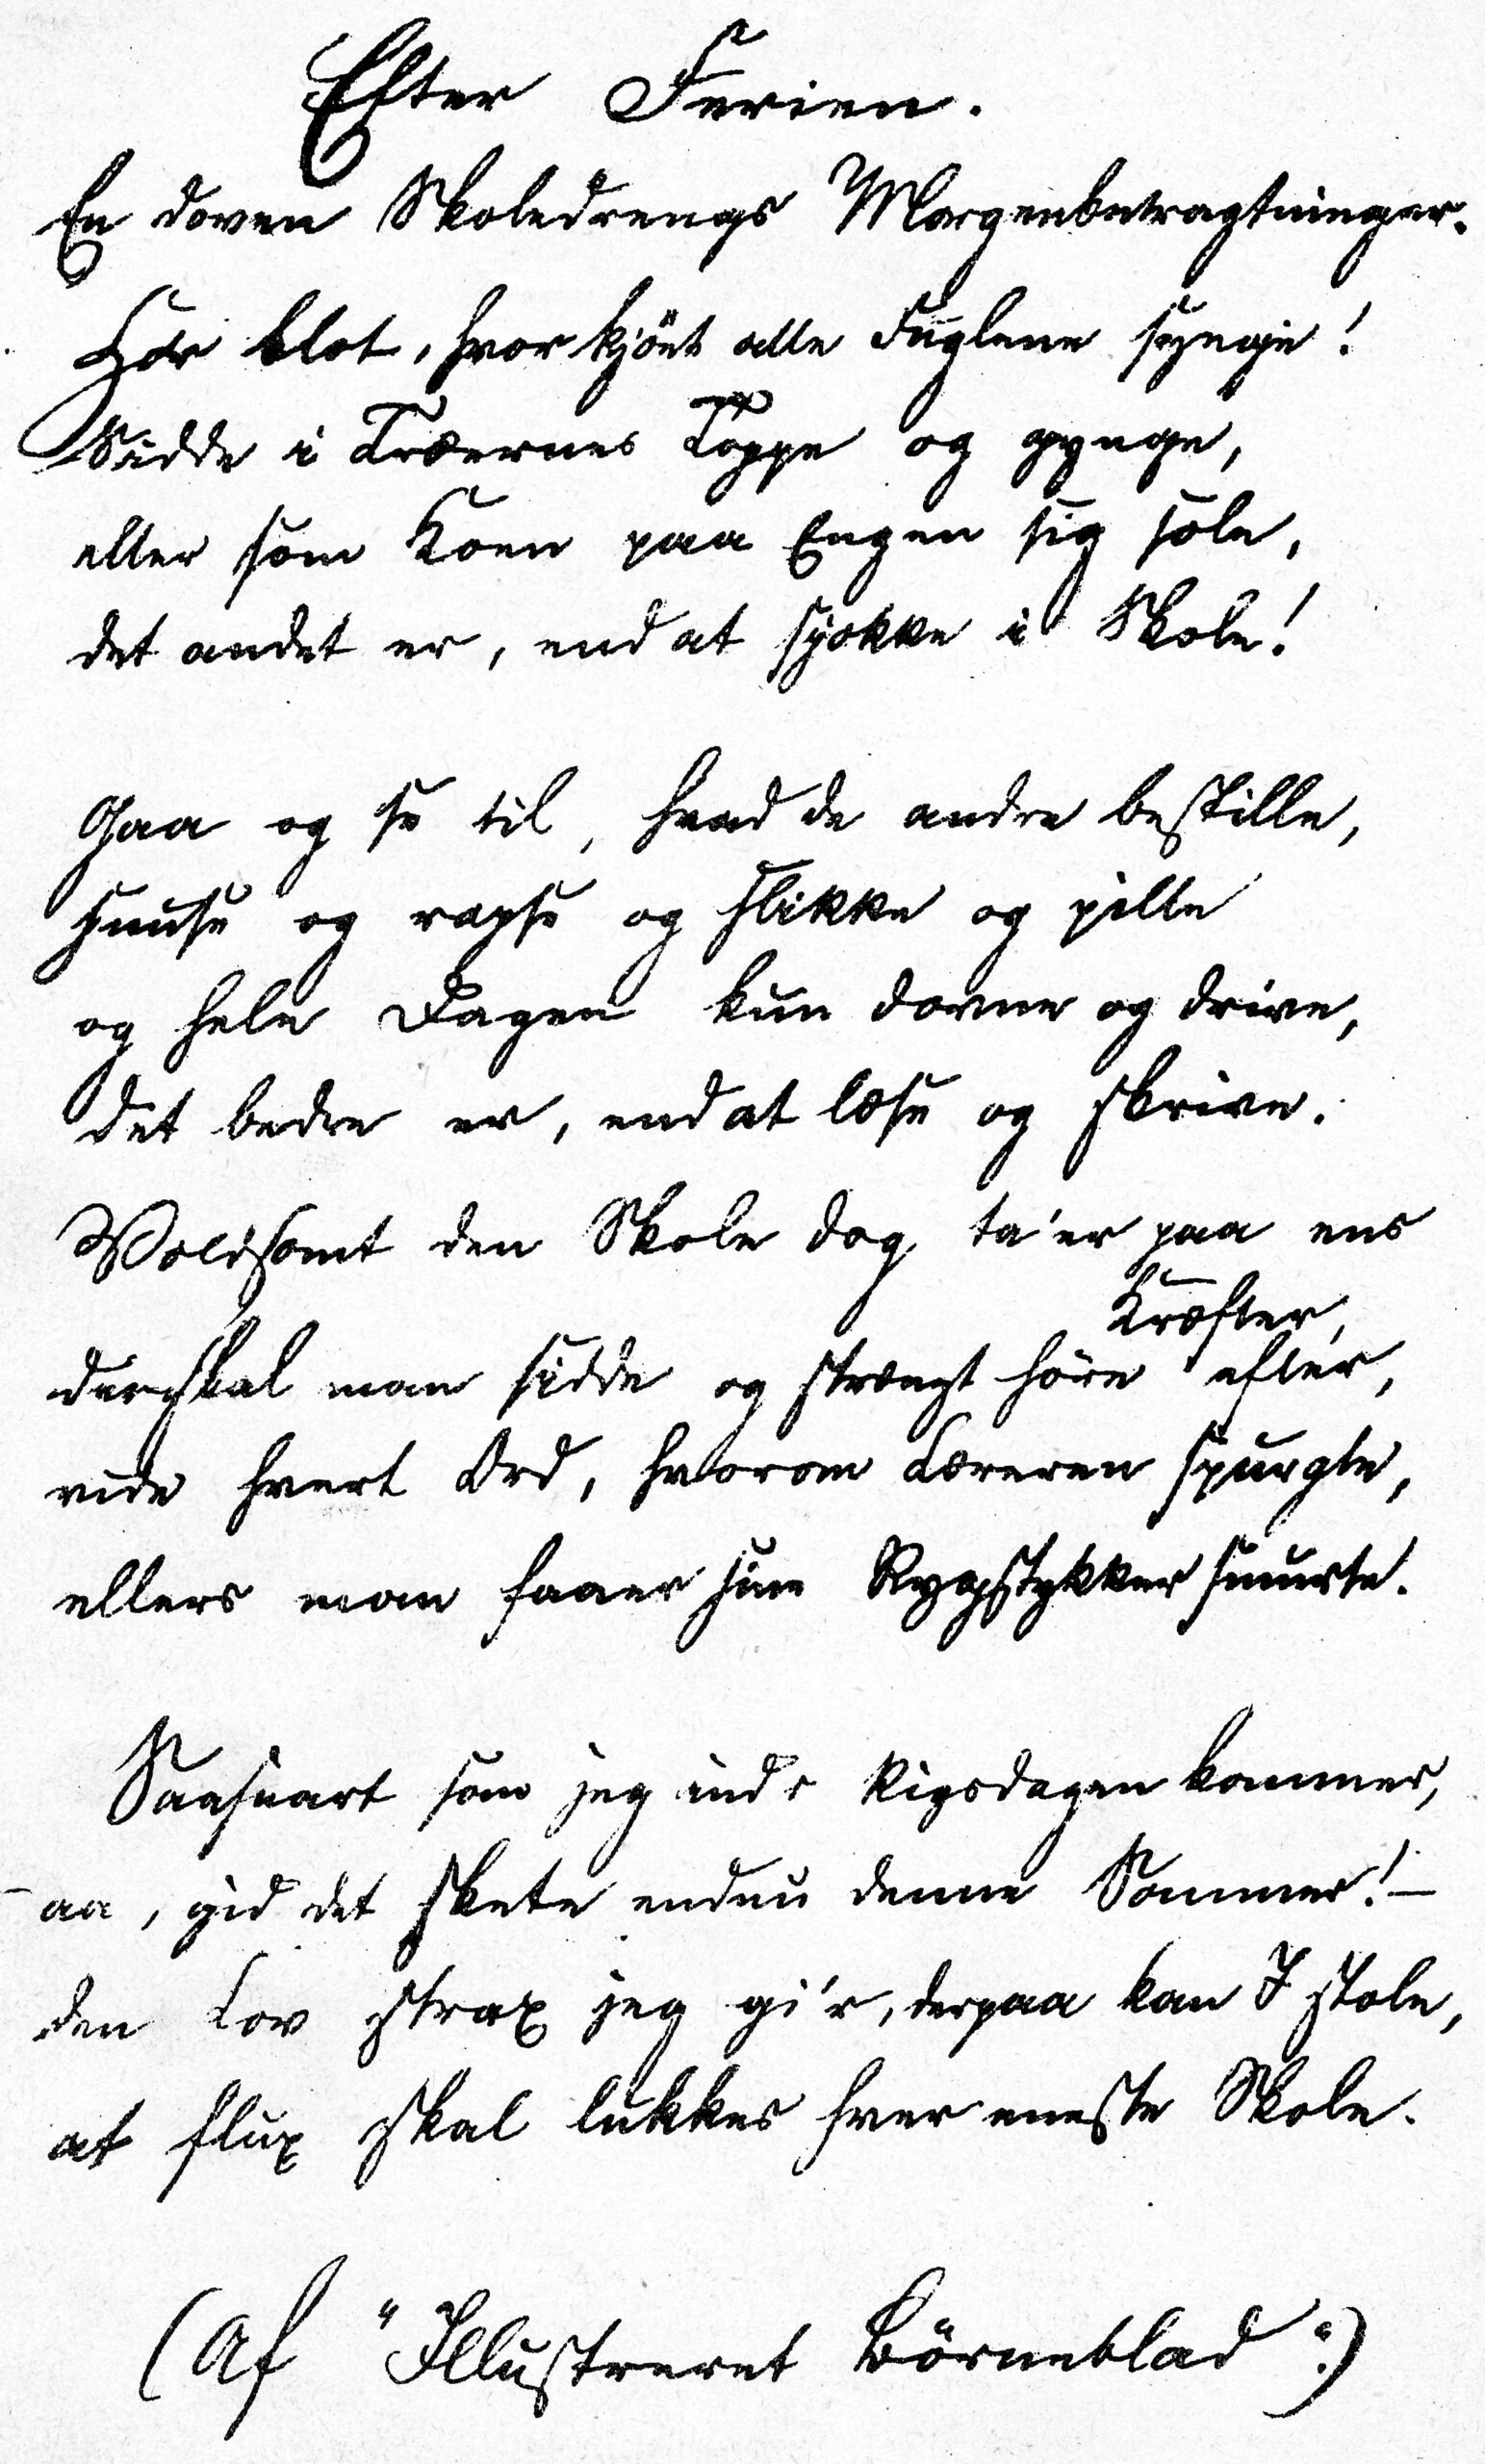 Efter Ferien.
En doven Skoledrengs Morgenbetragtninger.
Hör blot, hvor kjönt alle Fuglene synge!
Sidde i Træernes Toppe og gynge,
eller som Koen paa Engen sig sole,
det andet er, end at sjokke i Skole!
Gaa og se til, hvad de andre bestille,
snuse og rapse og slikke og pille
og hele Dagen kun dovne og drive,
det bedre er, end at læse og skrive.
Voldsomt den Skole dog ta'er paa ens
Kræfter,
der skal man sidde og strængt höre efter,
vide hvert Ord, hvorom Læreren spurgte,
ellers man faaer sine Rygstykker smurte.
Saasnart som jeg ind i Rigsdagen kommer,
– aa, gid det skete endnu denne Sommer! –
den Lov strax jeg gi'r, derpaa kan I stole,
at flux skal lukkes hver eneste Skole.
(Af "Illustreret Börneblad".)